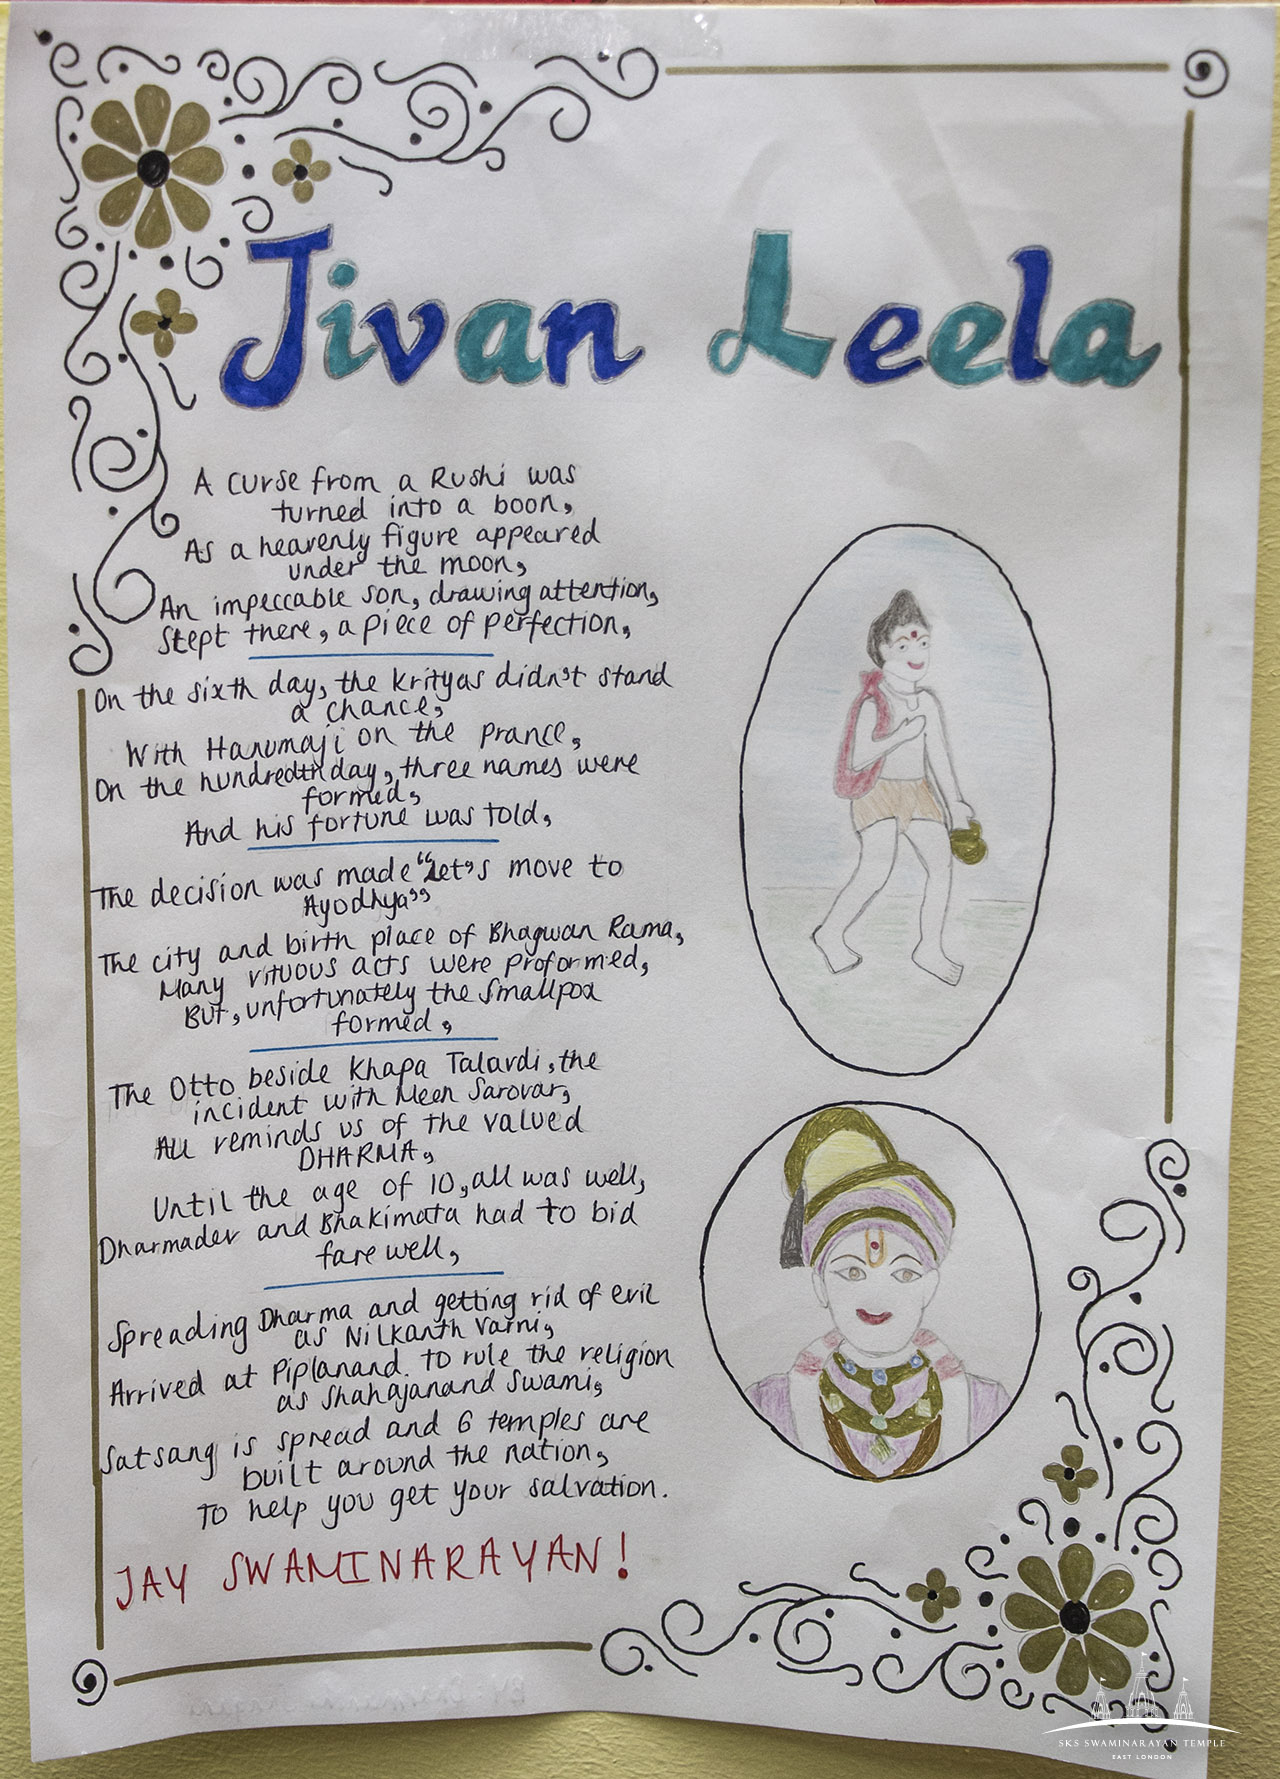 Jivan Leela
A curse from a Rushi was
turned into a boon,
As a heavenly figure appeared
under the moon,
An impeccable son, drawing attention,
Stept there, a piece of perfection,
On the sixth day, the Krityas didn't stand
a chance,
With Hanumaji on the prance,
On the hundredth day, three names were
formed,
And his fortune was told,
The decision was made "Let's move to
Ayodhya"
The city and birth place of Bhagwan Rama,
Many vituous acts were proformed,
But, unfortunately the smallpox
formed,
The Otto beside Khapa Talavdi, the
incident with Meen Sarovar,
All reminds us of the valued
DHARMA,
Until the age of 10, all was well,
Dharmadev and Bhakimata had to bid
fare well,
Spreading Dharma and getting rid of evil
as Nilkanth Varni,
Arrived at Piplanand. to rule the religion
as Shahajanand Swami,
Satsang is spread and 6 temples are
built around the nation,
To help you get your salvation.
JAY SWAMINARAYAN!
SKS SWAMINARAYAN TEMPLE
EAST LONDON